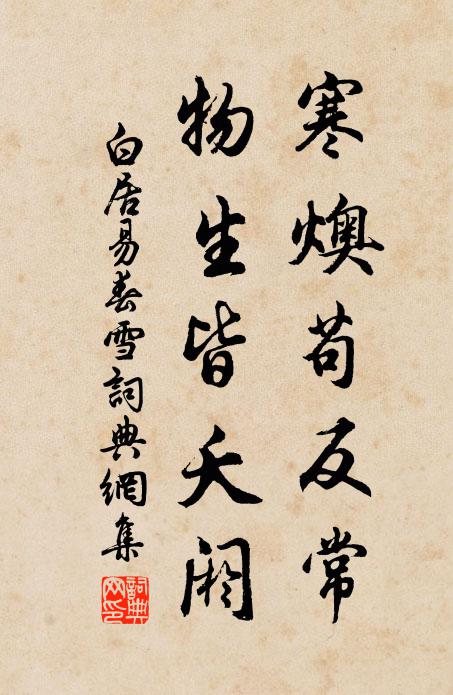 寒燠苟反常
物生皆夭阏
白居易春雪詞典網集
詞典網印